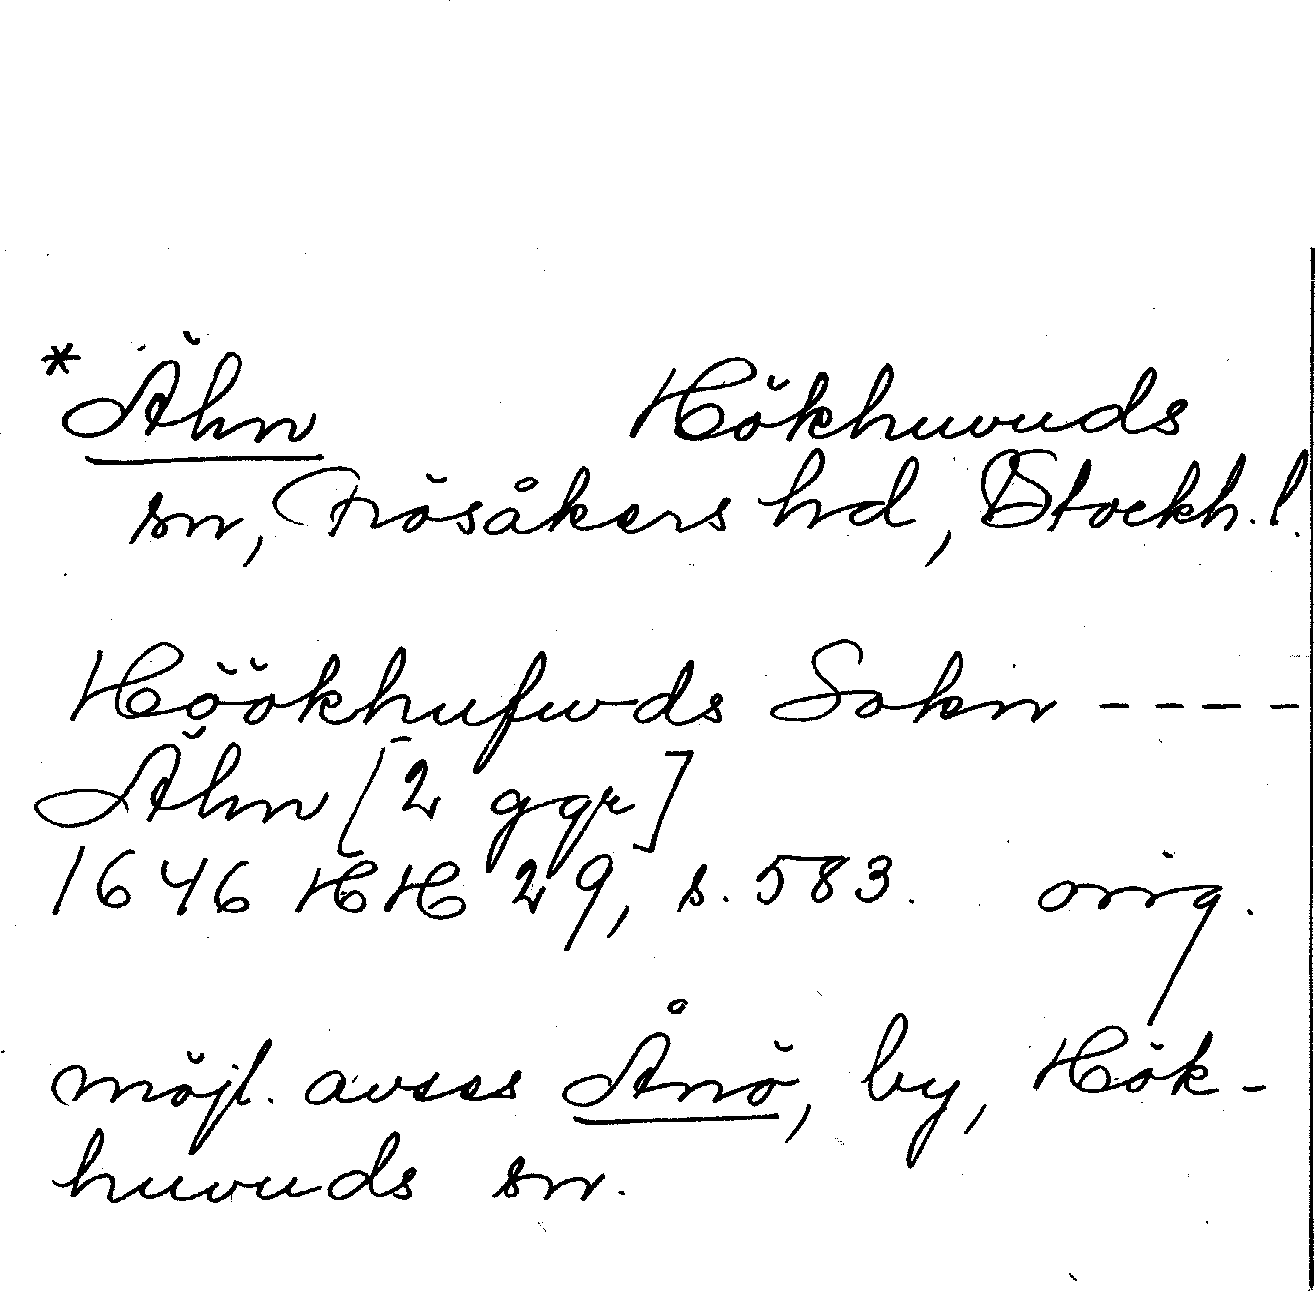 *Ähn Hökhuvuds
sn, Frösåkers hd, Stockh. l.
Höökhufwds Sokn ----
Ähn [2 ggr]
1646 HH 29, s. 583. orig.
möjl. avses Ånö, by, Hök-
huvuds sn.